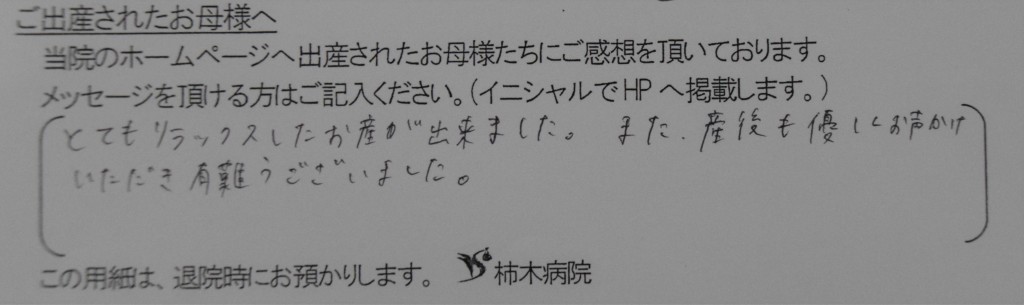 ご出産されたお母様へ
当院のホームページへ出産されたお母様たちにご感想を頂いております。
メッセージを頂ける方はご記入ください。(イニシャルでHPへ掲載します。)
とてもリラックスしたお産が出来ました。 また、産後も優しくお声かけ
いただき有難うございました。
この用細は、退院時にお預かりします。 柿木病院